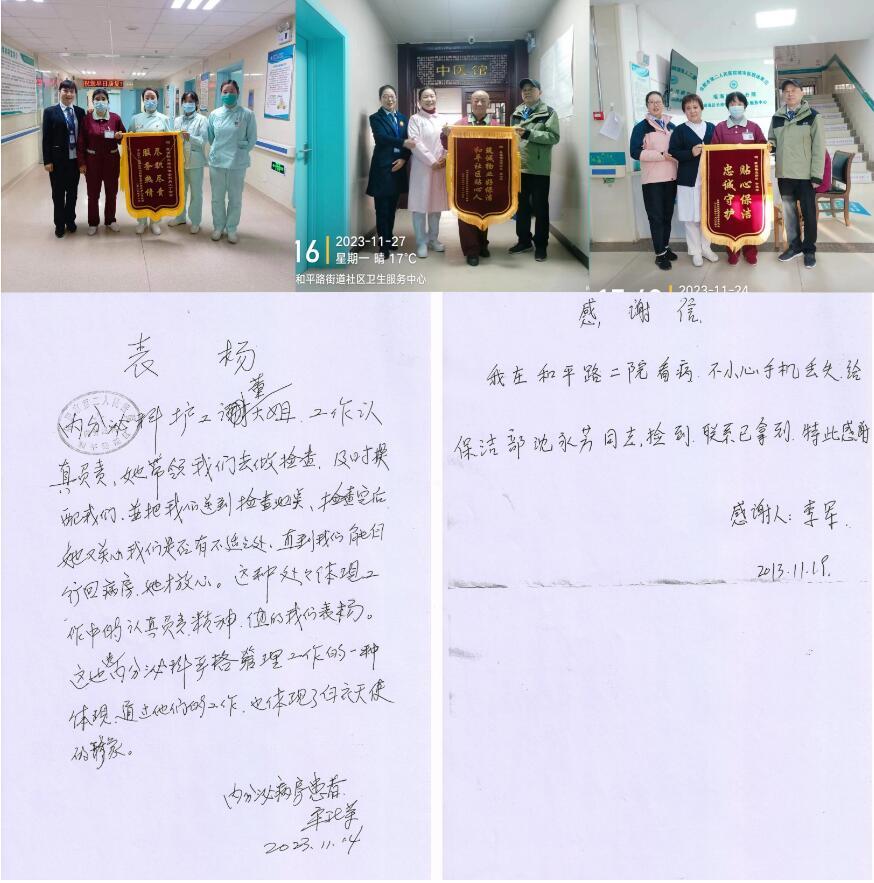 尽职尽责
服务热情
中医馆
筑诚物业好保洁
和平社区贴心人
16
2023-11-27
星期一 晴 17℃
和平路街道社区卫生服务中心
贴心保洁
忠诚守护
2023-11-24
表 杨
董
内分泌科护工谢大姐、工作认
真负责、她带领我们去做检查、及时搀
配我们、並把我们送到检查处、检查完后
她又关心我们是否有不适之处、直到我们能自
行回病房、她才放心。这种处处体现工
作中的认真负责精神、值的我们表杨。
这也是内分泌科严格管理工作的一种
体现、通过他们的工作、也体现了白衣天使
的形象。
内分泌病房患者
2023.11.14
感 谢 信
我在和平路二院看病.不小心手机丢失.给
保洁部沈永芳同志,捡到.联系已拿到.特此感谢
感谢人:李军.
2013.11.19.